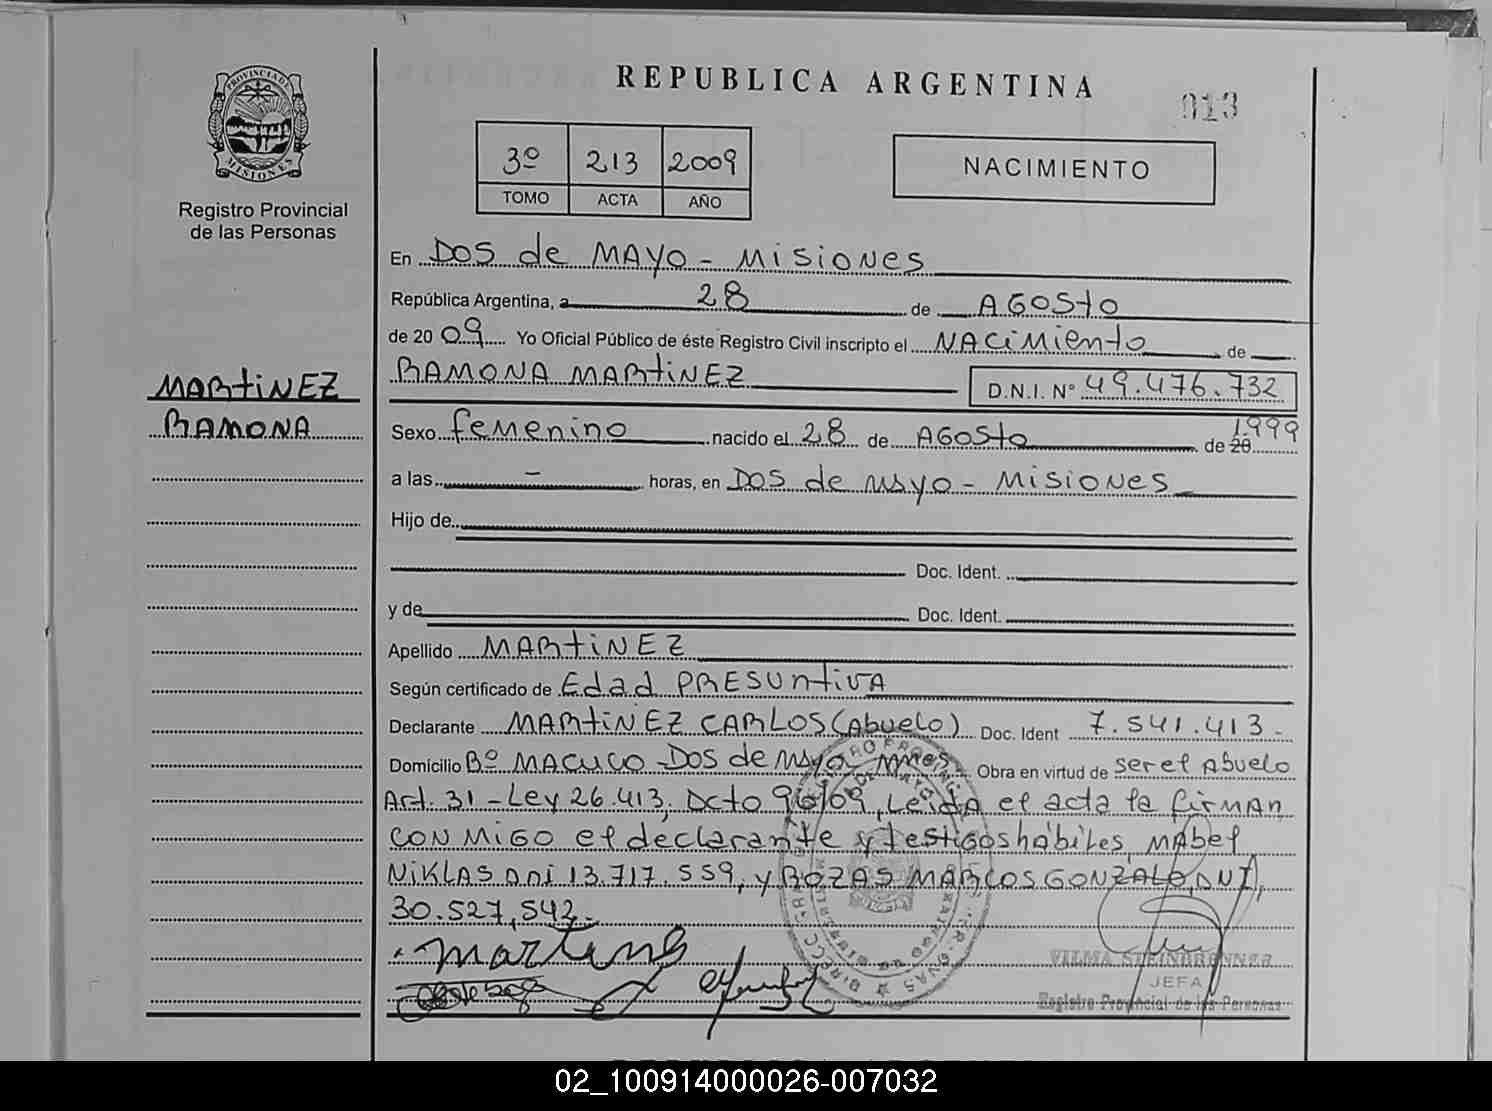 PROVINCIA DE
MISIONES
Registro Provincial
de las Personas
REPUBLICA ARGENTINA
013
3º 213 2009
TOMO ACTA AÑO
NACIMIENTO
En DOS de MAYO - MISIONES
República Argentina, a 28 de AGOSTO
de 2009 Yo Oficial Público de éste Registro Civil inscripto el NACIMIENTO de
RAMONA MARTINEZ D.N.I. Nº 49.476.732
MARTINEZ
RAMONA
Sexo femenino nacido el 28 de AGOSTO de 20 1999
a las - horas, en DOS de MAYO - MISIONES
Hijo de
Doc. Ident.
y de Doc. Ident.
Apellido MARTINEZ
Según certificado de Edad PRESUNTIVA
Declarante MARTINEZ CARLOS (Abuelo) Doc. Ident 7.541.413.-
Domicilio Bº MACUCO - DOS de MAYO Mnes Obra en virtud de ser el Abuelo
Art. 31 - Ley 26.413, Dcto 90/09, Leida el acta la firman
CONMIGO el declarante y testigos hábiles, MAbel
NIKLAS DNI 13.717.559, y ROZAS MARCOS GONZALO, DNI,
30.527.542.-
VILMA STEINBRENNER
JEFA
Registro Provincial de las Personas
02_100914000026-007032